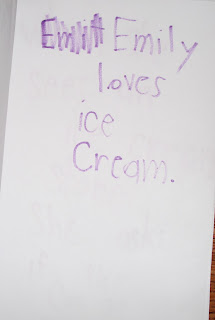 Emily
loves
ice
Cream.